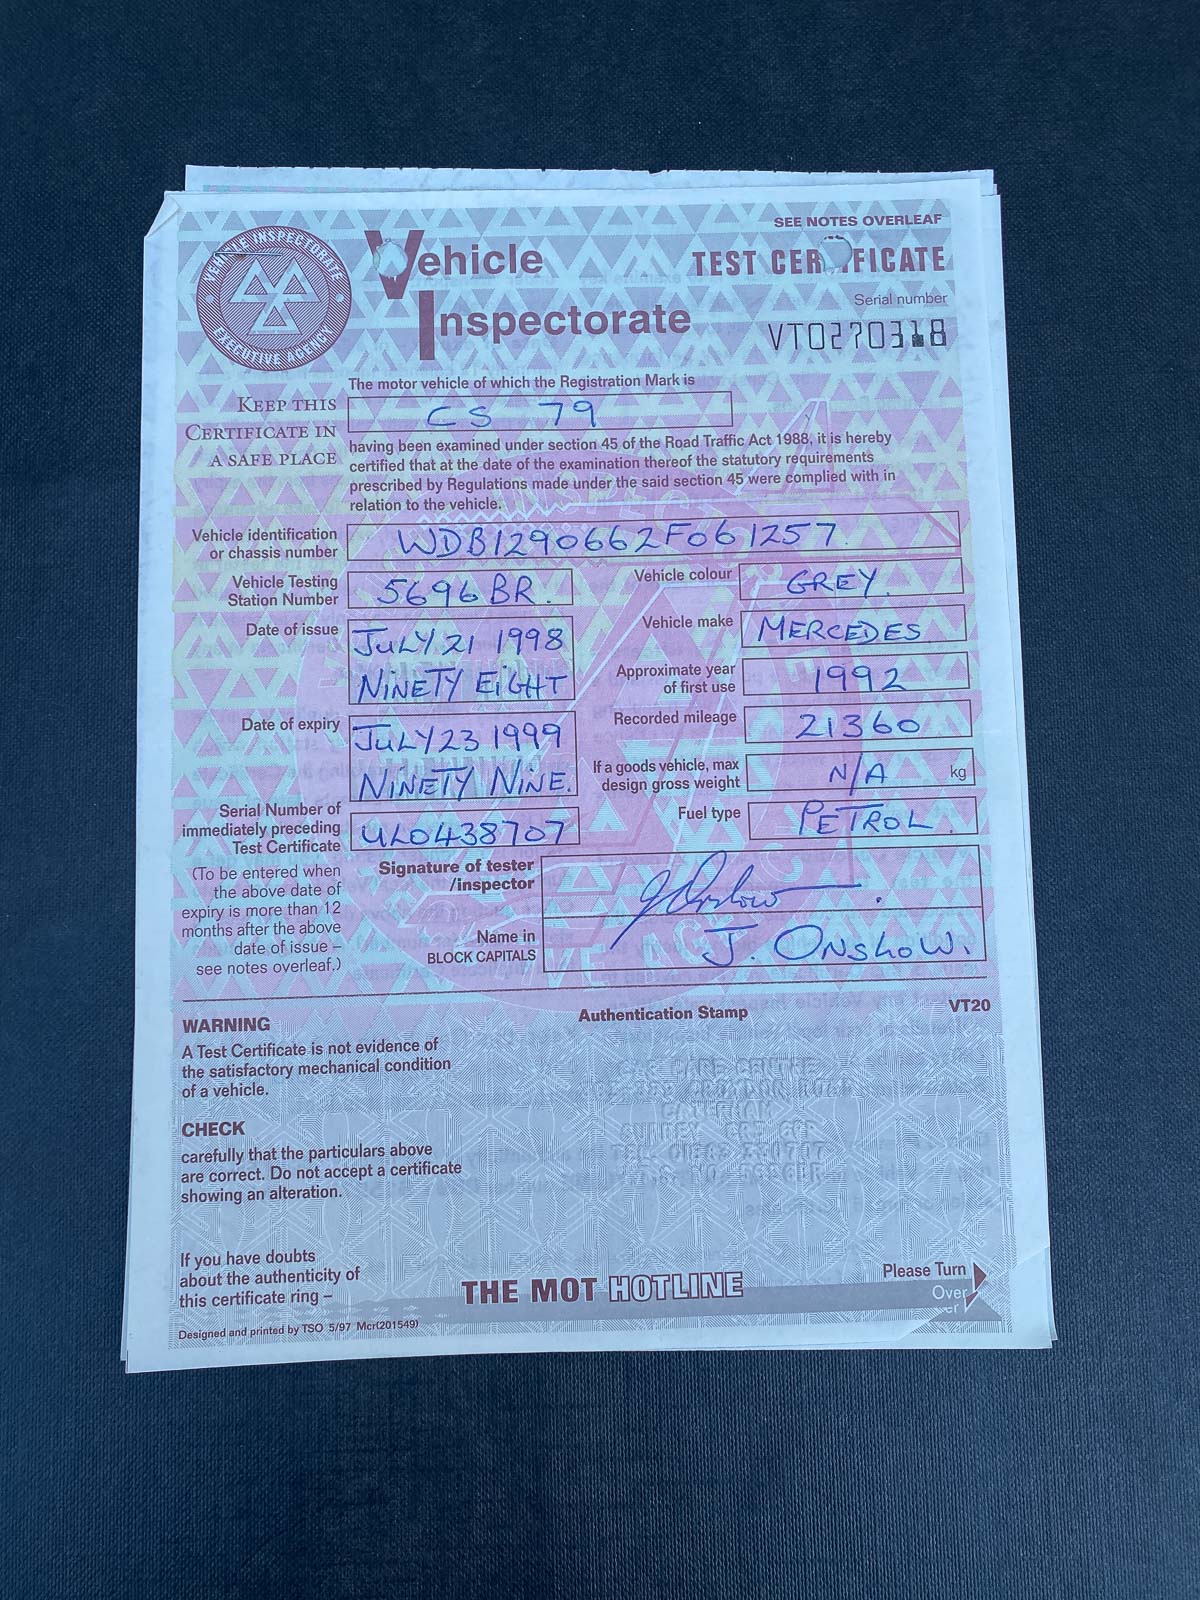 SEE NOTES OVERLEAF
VEHICLE INSPECTORATE
EXECUTIVE AGENCY
Vehicle
Inspectorate
TEST CERTIFICATE
Serial number
The motor vehicle of which the Registration Mark is
CS 79
KEEP THIS
CERTIFICATE IN
A SAFE PLACE
having been examined under section 45 of the Road Traffic Act 1988, it is hereby
certified that at the date of the examination thereof the statutory requirements
prescribed by Regulations made under the said section 45 were complied with in
relation to the vehicle.
Vehicle identification
or chassis number
WDB1290662F061257
Vehicle Testing
Station Number
5696BR.
Vehicle colour
GREY.
Date of issue
JULY 21 1998
NINETY EIGHT
Vehicle make
MERCEDES
Approximate year
of first use
1992
Date of expiry
JULY 23 1999
NINETY NINE.
Recorded mileage
21360
If a goods vehicle, max
design gross weight
N/A kg
Serial Number of
immediately preceding
Test Certificate
UL0438707
Fuel type
PETROL.
(To be entered when
the above date of
expiry is more than 12
months after the above
date of issue –
see notes overleaf.)
Signature of tester
/inspector
J Onslow
Name in
BLOCK CAPITALS
J. ONSLOW.
WARNING
A Test Certificate is not evidence of
the satisfactory mechanical condition
of a vehicle.
Authentication Stamp
VT20
CATERHAM
CHECK
carefully that the particulars above
are correct. Do not accept a certificate
showing an alteration.
If you have doubts
about the authenticity of
this certificate ring –
THE MOT HOTLINE
Please Turn
Over
er
Designed and printed by TSO 5/97 Mcr(201549)